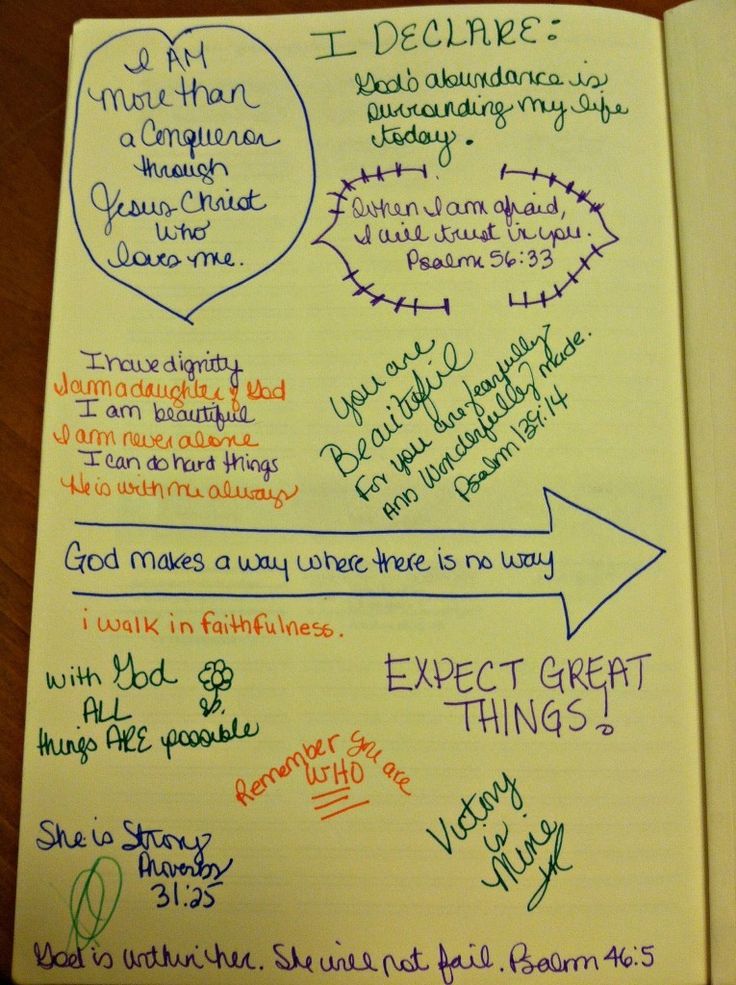 I AM
More than
a Conqueror
through
Jesus Christ
who
loves me.
I DECLARE:
God's abundance is
surrounding my life
today.
When I am afraid,
I will trust in you.
Psalm 56:33
I have dignity
I am a daughter of God
I am beautiful
I am never alone
I can do hard things
He is with me always
You are
Beautiful
For you are fearfully
And Wonderfully made.
Psalm 139:14
God makes a way where there is no way
i walk in faithfulness.
with God
ALL
things ARE possible
EXPECT GREAT
THINGS!
Remember you are
WHO
She is Strong
Proverbs
31:25
Victory
is
Mine
God is within her. She will not fail. Psalm 46:5